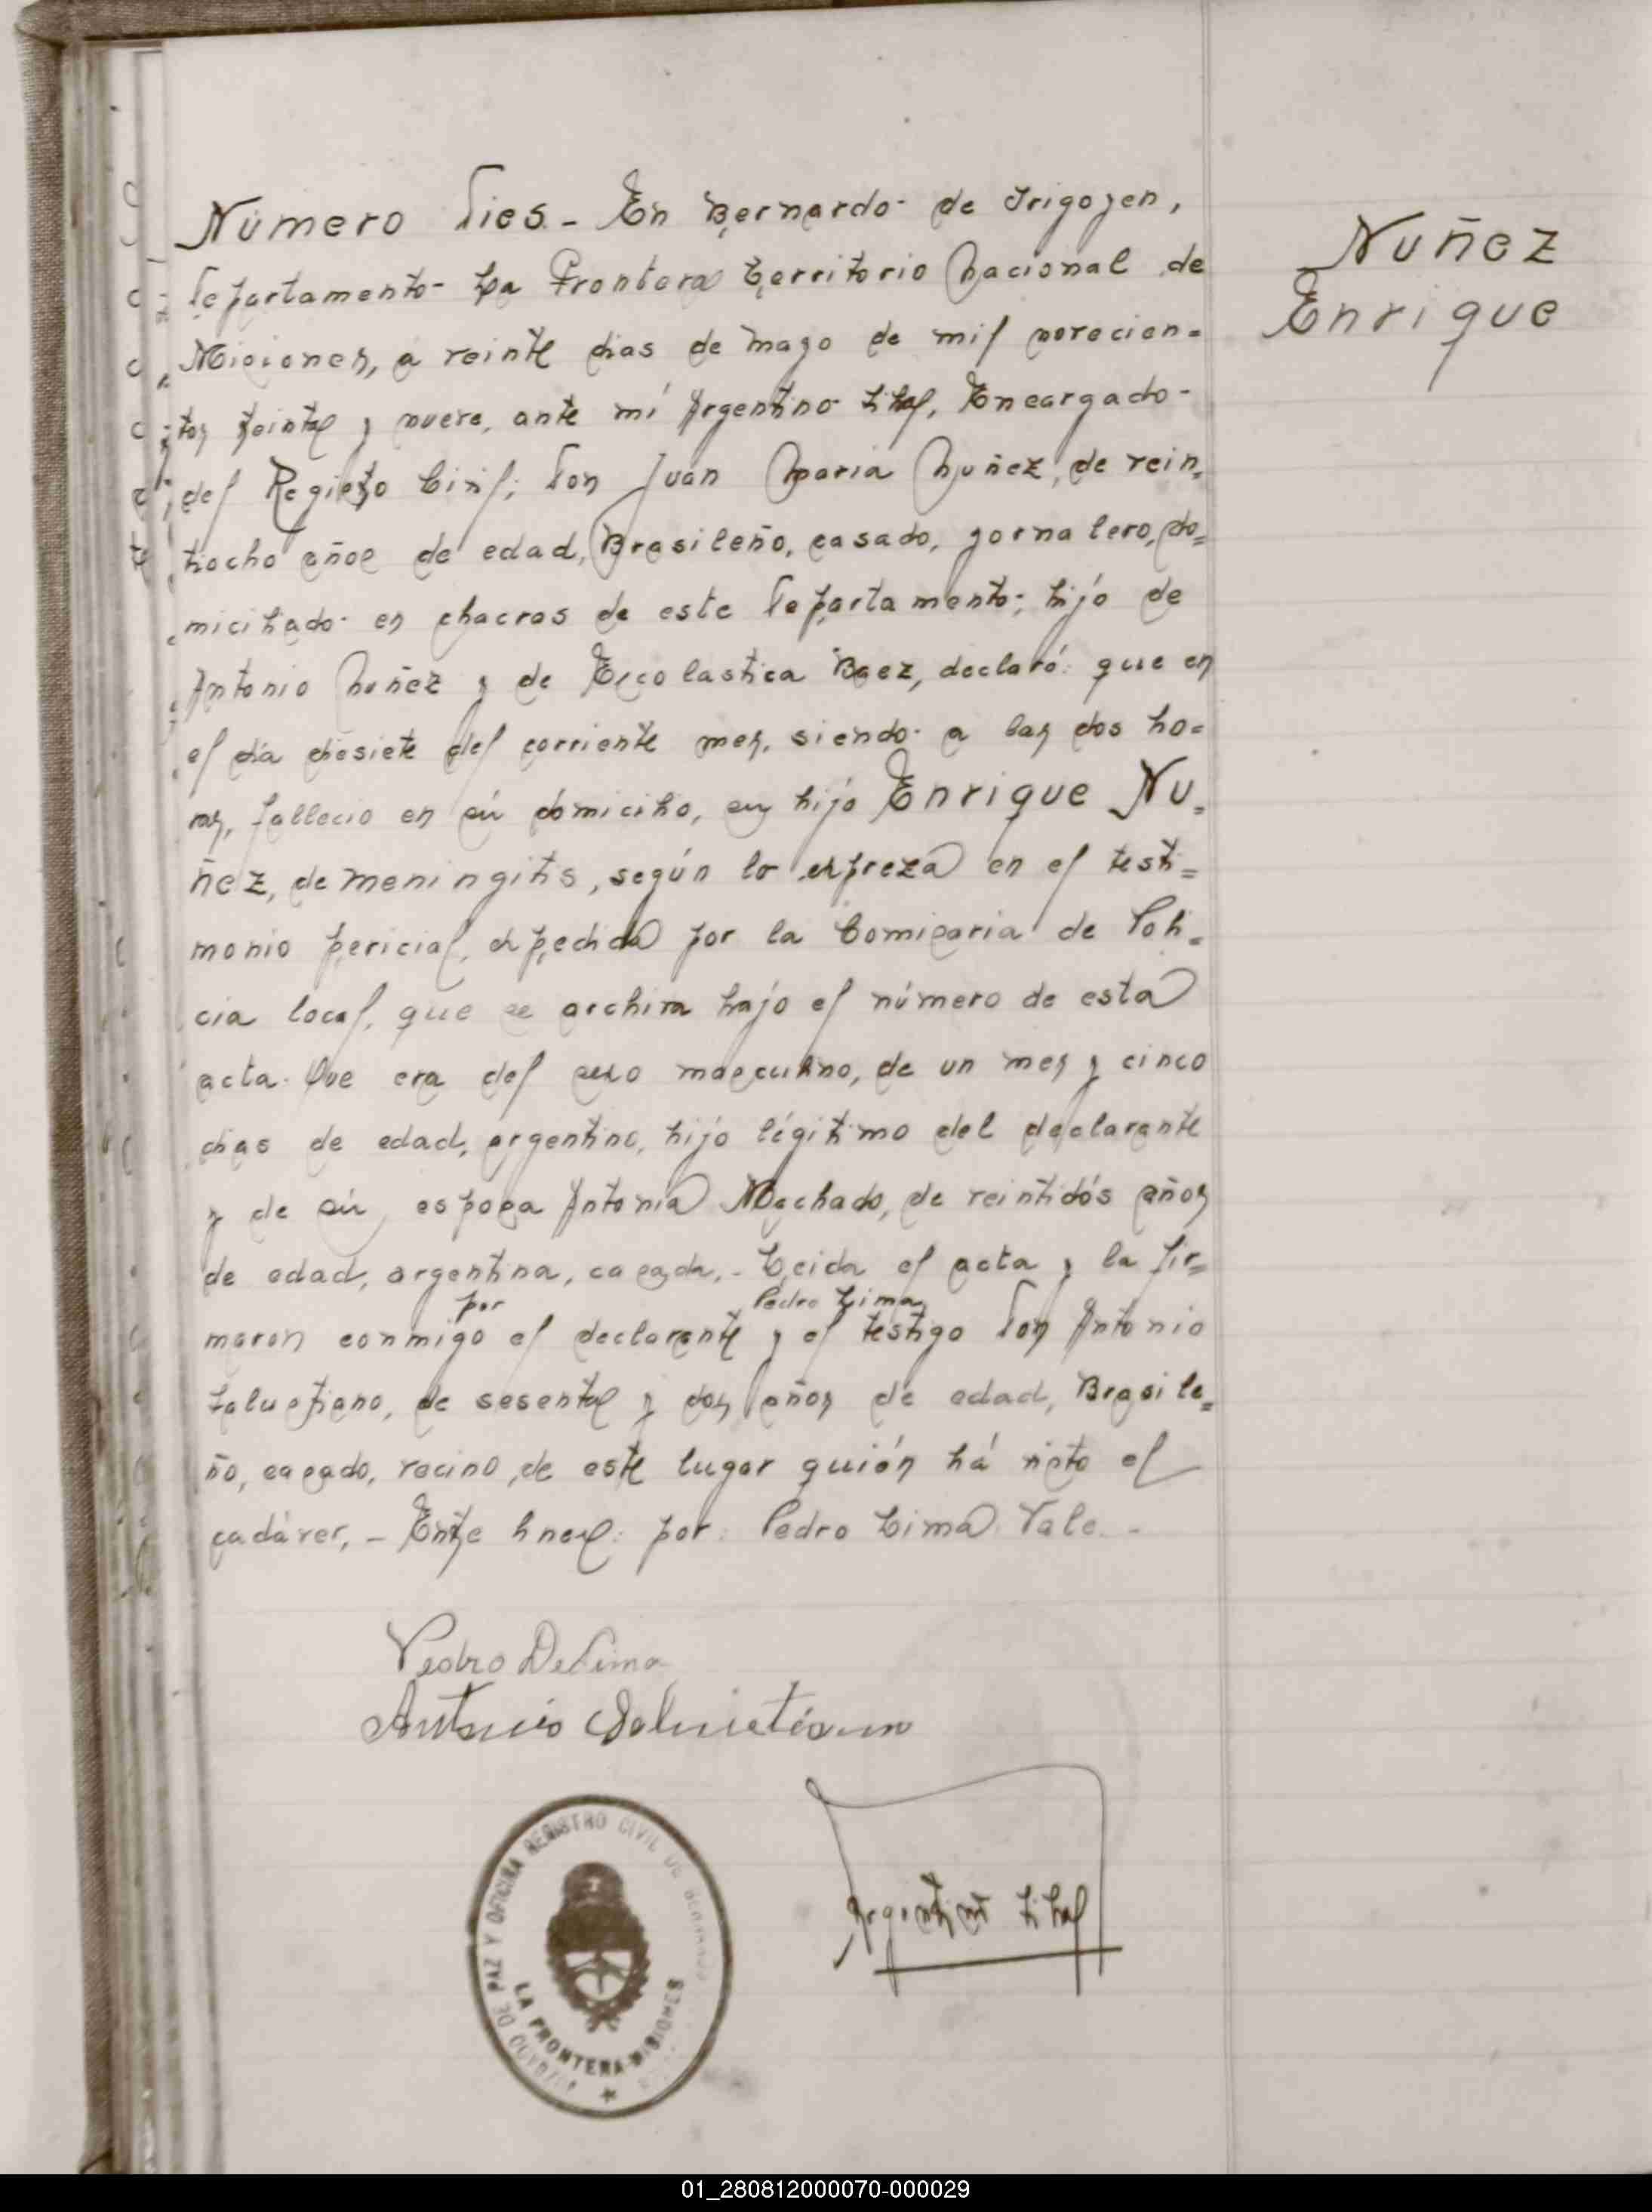 Número Dies.- En Bernardo de Irigoyen,
Departamento La Frontera Territorio Nacional de
Misiones, a veinte dias de mayo de mil novecien=
tos treinta y nueve, ante mí Argentino Lihal, Encargado
del Registro Civil; Don Juan Maria Nuñez, de vein=
tiocho años de edad, Brasileño, casado, jornalero, do=
miciliado en chacras de este Departamento; hijo de
Antonio Nuñez y de Escolastica Baez, declaró: que en
el día diesiete del corriente mes, siendo a las dos ho=
ras, fallecio en sú domicilio, su hijo Enrique Nu=
ñez, de meningitis, según lo expreza en el testi=
monio pericial, expedida por la Comisaria de Poli=
cia local, que se archiva bajo el número de esta
acta. Que era del sexo masculino, de un mes y cinco
dias de edad, argentino, hijo légitimo del declarante
y de sú esposa Antonia Machado, de veintidós años
de edad, argentina, casada,.- Leida el acta y la fir=
por Pedro Lima
maron conmigo el declarante y el testigo Don Antonio
Salustiano, de sesenta y dos años de edad, Brasile=
ño, casado, vecino, de este lugar quién há visto el
cadáver,.- Entre lineas: por: Pedro Lima. Vale.-
Pedro De Lima
Antonio Salustiano
Argentino Lihal
DE PAZ Y OFICINA REGISTRO CIVIL DE BERNARDO
LA FRONTERA-MISIONES
Nuñez
Enrique
01_280812000070-000029